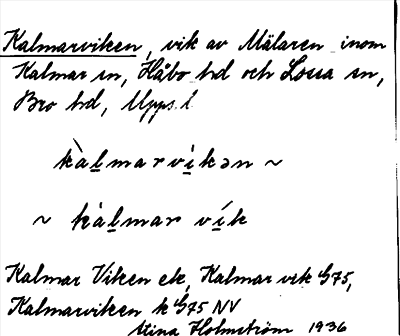 Kalmarviken, vik av Mälaren inom
Kalmar sn, Håbo hd och Lossa sn,
Bro hd, Upps. l.
kàl̲marvi̲kən ~
~ kàl̲mar ví̲k
Kalmar Viken ek, Kalmar vik G75,
Kalmarviken k G75 NV
Stina Holmström 1936